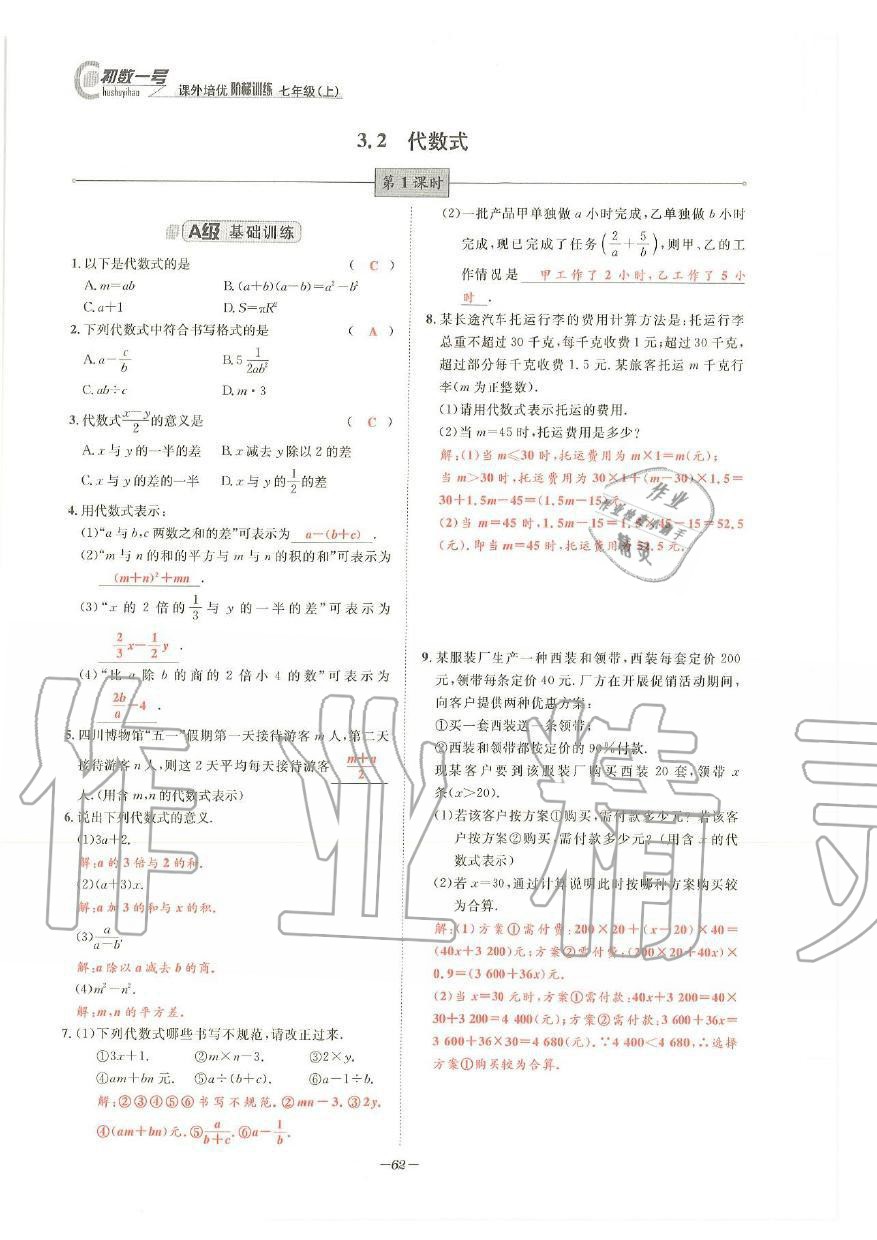 初数一号
chushuyihao
课外培优 阶梯训练 七年级(上)
3.2 代数式
第1课时
A级 基础训练
1.以下是代数式的是 ( C )
A.m=ab B.(a+b)(a-b)=a²-b²
C.a+1 D.S=πR²
2.下列代数式中符合书写格式的是 ( A )
A.a-c/b B.5 1/2ab²
C.ab÷c D.m·3
3.代数式(x-y)/2的意义是 ( C )
A.x与y的一半的差 B.x减去y除以2的差
C.x与y的差的一半 D.x与y的1/2的差
4.用代数式表示:
(1)“a与b,c两数之和的差”可表示为 a-(b+c) .
(2)“m与n的和的平方与m与n的积的和”可表示为
(m+n)²+mn .
(3)“x的2倍的1/3与y的一半的差”可表示为
2/3x-1/2y .
(4)“比a除b的商的2倍小4的数”可表示为
2b/a-4 .
5.四川博物馆“五一”假期第一天接待游客m人,第二天
接待游客n人,则这2天平均每天接待游客 (m+n)/2
人.(用含m,n的代数式表示)
6.说出下列代数式的意义.
(1)3a+2.
解:a的3倍与2的和.
(2)(a+3)x.
解:a加3的和与x的积.
(3)a/(a-b).
解:a除以a减去b的商.
(4)m²-n².
解:m,n的平方差.
7.(1)下列代数式哪些书写不规范,请改正过来.
①3x+1. ②m×n-3. ③2×y.
④am+bn元. ⑤a÷(b+c). ⑥a-1÷b.
解:②③④⑤⑥书写不规范.②mn-3.③2y.
④(am+bn)元.⑤a/(b+c).⑥a-1/b.
(2)一批产品甲单独做a小时完成,乙单独做b小时
完成,现已完成了任务(2/a+5/b),则甲、乙的工
作情况是 甲工作了2小时,乙工作了5小
时 .
8.某长途汽车托运行李的费用计算方法是:托运行李
总重不超过30千克,每千克收费1元;超过30千克,
超过部分每千克收费1.5元.某旅客托运m千克行
李(m为正整数).
(1)请用代数式表示托运的费用.
(2)当m=45时,托运费用是多少?
解:(1)当m≤30时,托运费用为m×1=m(元);
当m>30时,托运费用为30×1+(m-30)×1.5=
30+1.5m-45=(1.5m-15)元.
(2)当m=45时,1.5m-15=1.5×45-15=52.5
(元).即当m=45时,托运费用为52.5元.
9.某服装厂生产一种西装和领带,西装每套定价200
元,领带每条定价40元.厂方在开展促销活动期间,
向客户提供两种优惠方案:
①买一套西装送一条领带;
②西装和领带都按定价的90%付款.
现某客户要到该服装厂购买西装20套,领带x
条(x>20).
(1)若该客户按方案①购买,需付款多少元?若该客
户按方案②购买,需付款多少元?(用含x的代
数式表示)
(2)若x=30,通过计算说明此时按哪种方案购买较
为合算.
解:(1)方案①需付费:200×20+(x-20)×40=
(40x+3 200)元;方案②需付费:(200×20+40x)×
0.9=(3 600+36x)元.
(2)当x=30元时,方案①需付款:40x+3 200=40×
30+3 200=4 400(元);方案②需付款:3 600+36x=
3 600+36×30=4 680(元).∵4 400<4 680,∴选择
方案①购买较为合算.
—62—
作业精灵